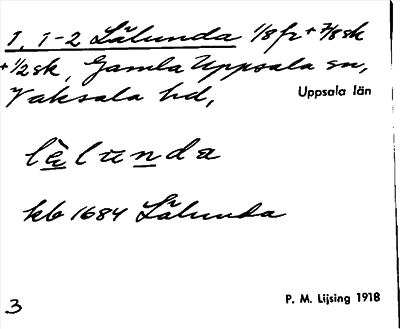 1, 1-2 Lålunda 1/8 fr + 7/8 sk
+ 1/2 sk, Gamla Uppsala sn,
Vaksala hd, Uppsala län
kb 1684 Lålunda
3 P. M. Lijsing 1918